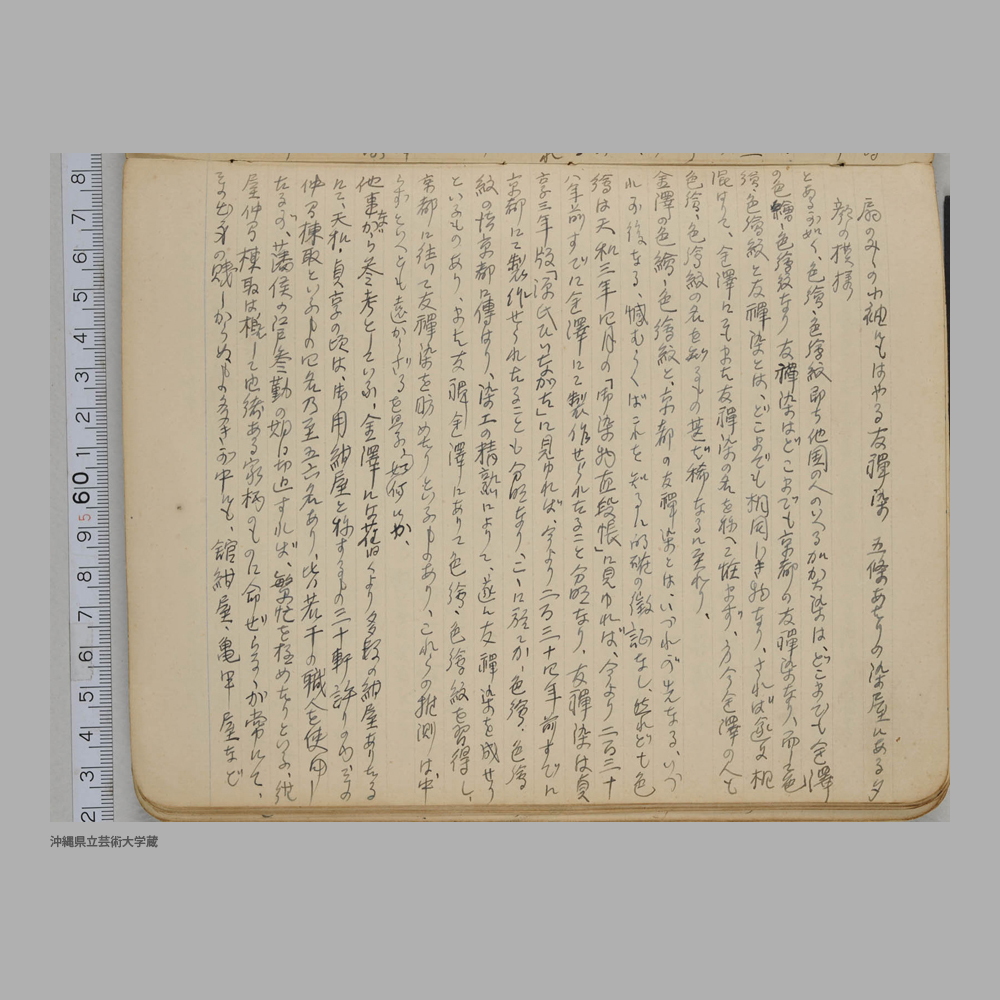 扇のみかの小袖にもはやる友禪染 五條あたりの染屋にある夕
顔の模様
とある如く、色繪・色繪紋即ち他国の人のいへる加賀染は、どこまでも金澤
の色繪・色繪紋なり 友禪染はどこまでも京都の友禪染なり、而して色
繪・色繪紋と友禪染とは、どこまでも相同じき物なり、されば近年相
混はりて、金澤にてもまた友禪染の名を称へて怪まず、方今金澤の人も
色繪、色繪紋の名を知るもの甚だ稀なるに至れり、
金澤の色繪・色繪紋と、京都の友禪染とは、いづれが先なる、いづ
れが後なる、憾むらくはこれを知るに的確の徴証なし、然れども色
繪は天和三年四月の「御染物直段帳」に見ゆれば、今より二百三十
八年前すでに金澤にて製作せられたること分明なり、友禪染は貞
享三年版「源氏ひいながた」に見ゆれば、今より二百三十四年前すでに
京都にて製作せられたることも分明なり、こゝに於てか、色繪・色繪
紋の技京都に傳はり、染工の精熟によりて、遂に友禪染を成せり
といふものあり、また友禪金澤にありて色繪、色繪紋を習得し、
京都に往て友禪染を肪めたりといふものあり、これらの推測は、中
らずといへども遠からざるを妥、如何にか、
他事ながら参考としていふ、金澤には舊くより多数の紺屋ありたる
にて、天和・貞享の頃は、御用紺屋と称するもの二十軒許りのわ、その
仲間棟取といふもの四名乃至五六名あり、皆若干の職人を使用し
たるが、藩侯の江戸参勤の期日切迫すれば、繁忙を極めたりといふ、紺
屋仲間棟取は概して由緒ある家柄のものに命ぜらるゝが常にて、
その出身の賤しからぬもの多きが中にも、舘紺屋、亀甲屋など